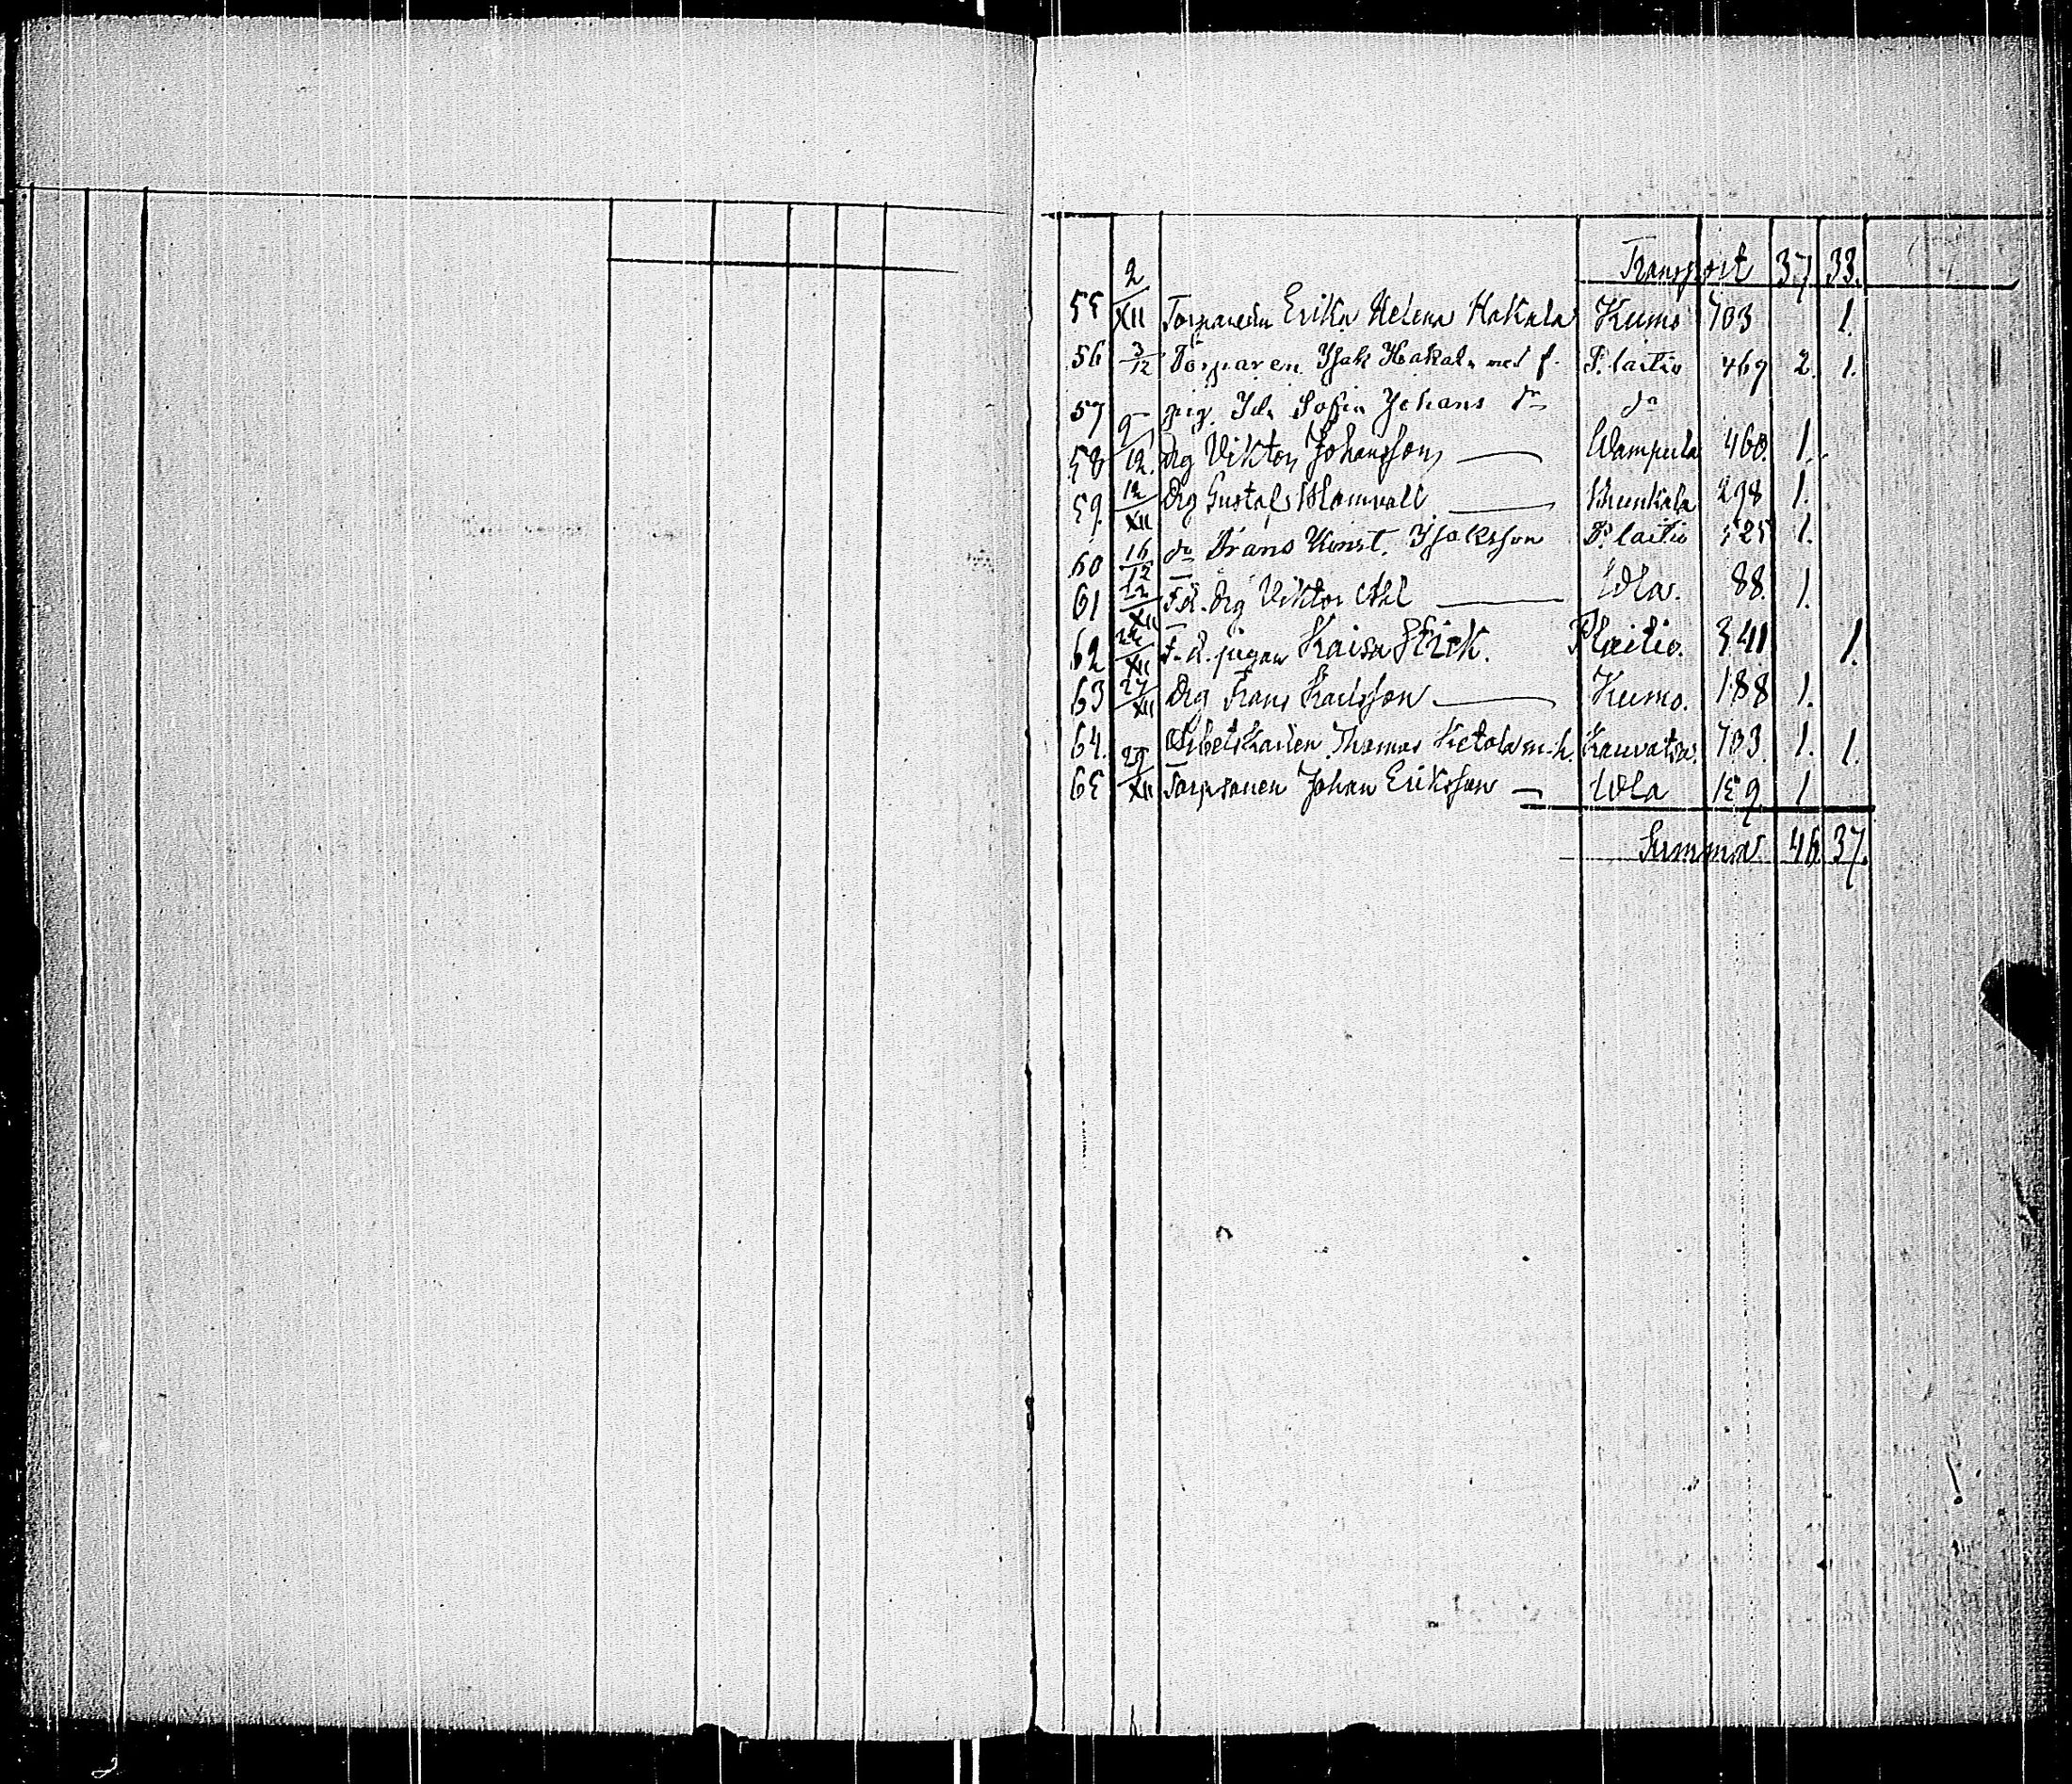 Transport 37. 33.
55 2/XII Erika Helena Hakala Kumo 703 1.
56 3/12 Torparen Isak Hakala med f. P. laitio 469 2. 1.
57 pig. Ida Sofia Johans dr do
58 9/12. drg Viktor Johansson — Wampula 460. 1.
59. 12/XII Drg Gustaf — 298 1.
60 16/12 do Frans Konst. Isaksson P. laitio 525 1.
61 22/XII F.d. drg Viktor — Ula. 88. 1.
62 22/XII f.d. pigan Kaisa P laitio. 341 1.
63 27/XII Drg Frans Karlsson — Kumo. 188 1.
64. Arbetskarlen Thomas Ketola m. h. Kauvatsa. 703. 1. 1.
65 29/XII Johan Eriksson — Ula 159 1
Summa 46 37.